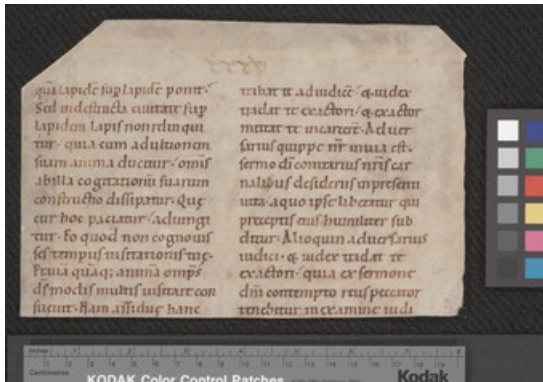 quia lapidē sup lapidē ponit.
Sed in destructa ciuitate sup
lapidem lapis non relinqui
tur. quia cum ad ultionem
suam anima ducitur. omīs
ab illa cogitationū suarum
constructio dissipatur. Quę
cur hoc paciatur. adiungi
tur. Eo quod non cognouis
ses tempus uisitationis tuę.
Prauā quāq; animā omps
ds modis multis uisitare con
sueuit. Nam assidue hanc
trahat te ad iudicē. & iudex
tradat te exactori. & exactor
mittat te in carcerē. Aduer
sarius quippe nr̄ in uia est.
sermo dī contrarius nr̄is car
nalibus desideriis in presenti
uita. a quo ipse liberatur qui
preceptis eius humiliter sub
ditur. Alioquin aduersarius
iudici. & iudex tradat te
exactori. quia ex sermone
dnī contempto reus peccator
tenebitur in examine iudi
inches
Centimetres
KODAK Color Control Patches
Kodak